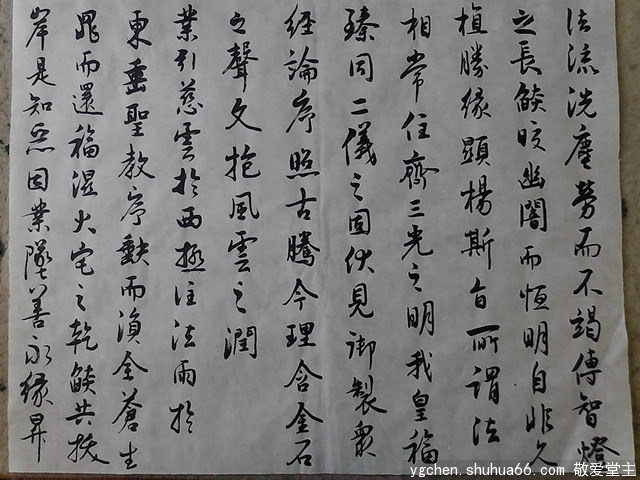 法流洗塵勞而不竭傳智燈
之長燄皎幽闇而恆明自非久
植勝緣顯楊斯旨所謂法
相常住齊三光之明我皇福
臻同二儀之固伏見御製衆
經論序照古騰今理含金石
之聲文抱風雲之潤
業引慈雲於西極注法雨於
東垂聖教序缺而復全蒼生
罪而還福濕火宅之乾燄共拔
岸是知惡因業墜善永緣昇
ygchen.shuhua66.com 敬爱堂主